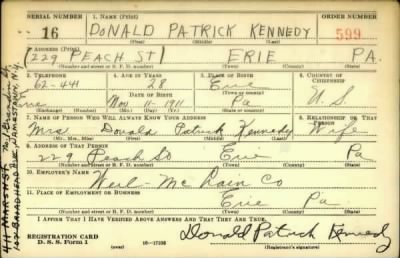 SERIAL NUMBER 1. NAME (Print) ORDER NUMBER
16 DONALD PATRICK KENNEDY 599
(First) (Middle) (Last)
2. ADDRESS (Print)
229 PEACH ST ERIE PA.
(Number and street or R. F. D. number) (Town) (County) (State)
3. TELEPHONE 4. AGE IN YEARS 5. PLACE OF BIRTH 6. COUNTRY OF CITIZENSHIP
62-441 28 Erie
DATE OF BIRTH
Erie Nov 11-1911 Pa U. S.
(Exchange) (Number) (Mo.) (Day) (Yr.) (State or country)
7. NAME OF PERSON WHO WILL ALWAYS KNOW YOUR ADDRESS 8. RELATIONSHIP OF THAT PERSON
Mrs Donald Patrick Kennedy Wife
(Mr., Mrs., Miss) (First) (Middle) (Last)
9. ADDRESS OF THAT PERSON
229 Peach St Erie Pa
(Number and street or R. F. D. number) (Town) (County) (State)
10. EMPLOYER'S NAME
Weil-McLain Co
11. PLACE OF EMPLOYMENT OR BUSINESS
Erie Pa.
(Number and street or R. F. D. number) (Town) (County) (State)
I AFFIRM THAT I HAVE VERIFIED ABOVE ANSWERS AND THAT THEY ARE TRUE.
REGISTRATION CARD
D. S. S. Form 1 16-17105
Donald Patrick Kennedy
(Registrant's signature)
JAMESTOWN N.Y.